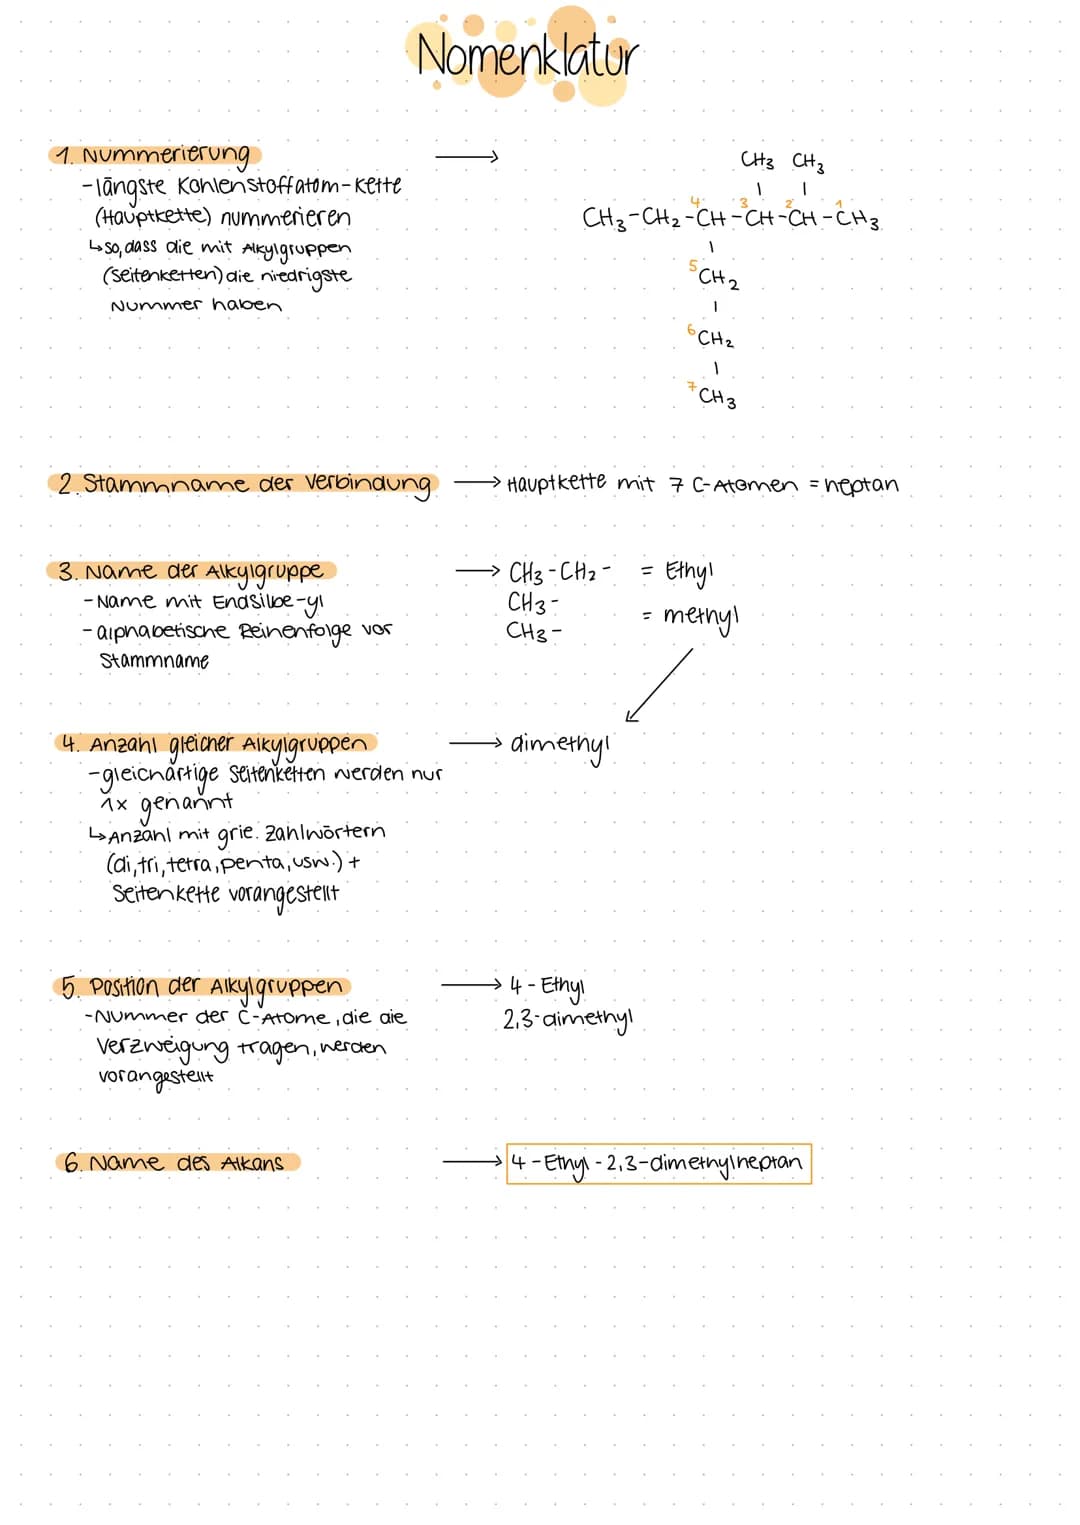 Nomenklatur
1. Nummerierung →
-längste Kohlenstoffatom-Kette
(Hauptkette) nummerieren
↳so, dass die mit Alkylgruppen
(Seitenketten) die niedrigste
Nummer haben
CH₃ CH₃
CH₃-CH₂-⁴CH-³CH-²CH-¹CH₃
⁵CH₂
⁶CH₂
⁷CH₃
2. Stammname der Verbindung → Hauptkette mit 7 C-Atomen = heptan
3. Name der Alkylgruppe → CH₃-CH₂- = Ethyl
-Name mit Endsilbe-yl CH₃-
-alphabetische Reihenfolge vor CH₃- = methyl
Stammname
4. Anzahl gleicher Alkylgruppen → dimethyl
-gleichartige Seitenketten werden nur
1x genannt
↳Anzahl mit grie. Zahlwörtern
(di, tri, tetra, penta, usw.) +
Seitenkette vorangestellt
5. Position der Alkylgruppen → 4-Ethyl
-Nummer der C-Atome, die die 2,3-dimethyl
Verzweigung tragen, werden
vorangestellt
6. Name des Alkans → 4-Ethyl-2,3-dimethylheptan